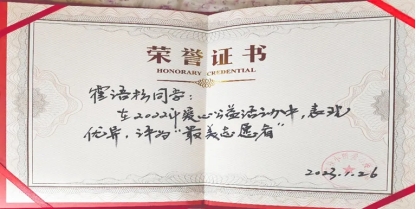 荣誉证书
HONORARY CREDENTIAL
霍语杉同学:
在2022年爱心公益活动中,表现
优异,评为"最美志愿者"
2023.1.26